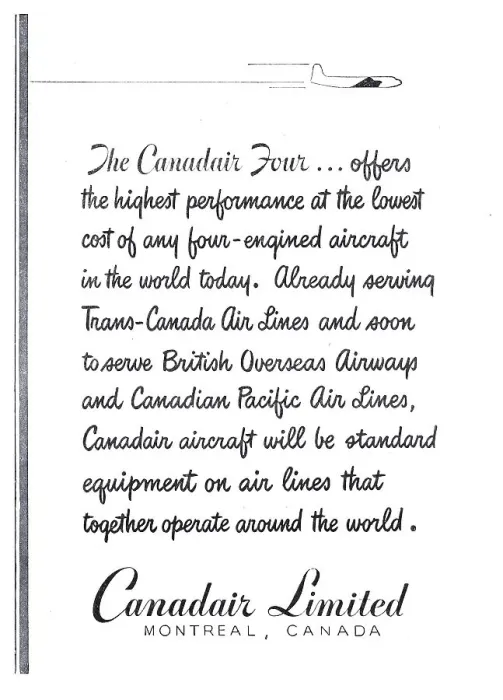 The Canadair Four ... offers
the highest performance at the lowest
cost of any four-engined aircraft
in the world today. Already serving
Trans-Canada Air Lines and soon
to serve British Overseas Airways
and Canadian Pacific Air Lines,
Canadair aircraft will be standard
equipment on air lines that
together operate around the world.
Canadair Limited
MONTREAL, CANADA